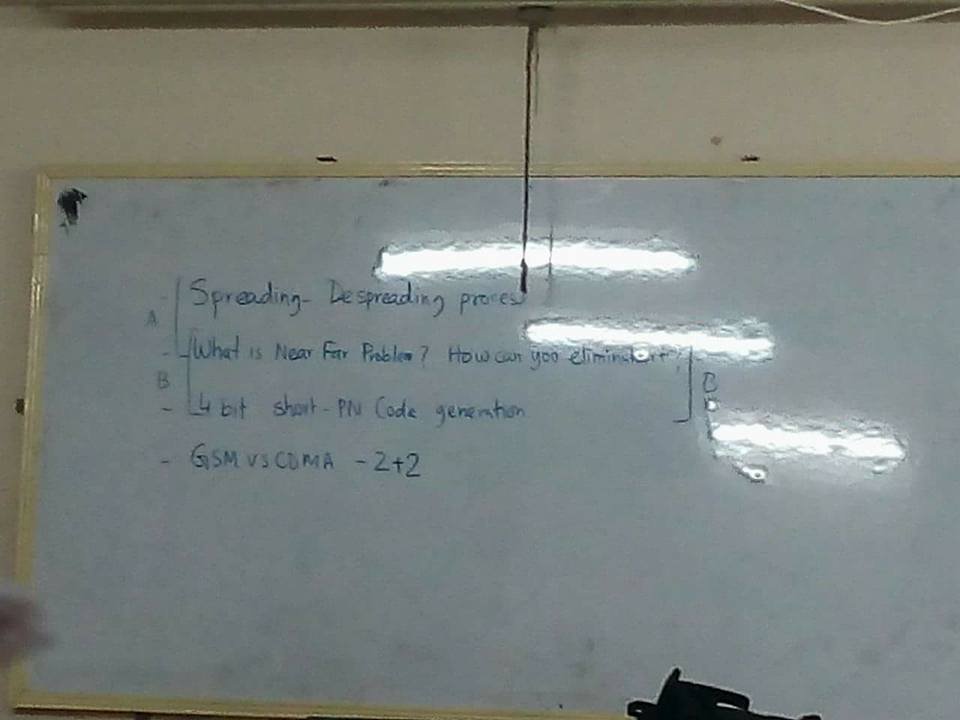 - Spreading - Despreading proces
A
- What is Near Far Problem? How can you eliminate it?
B B
- 4 bit short - PN Code generation
- GSM vs CDMA - 2+2